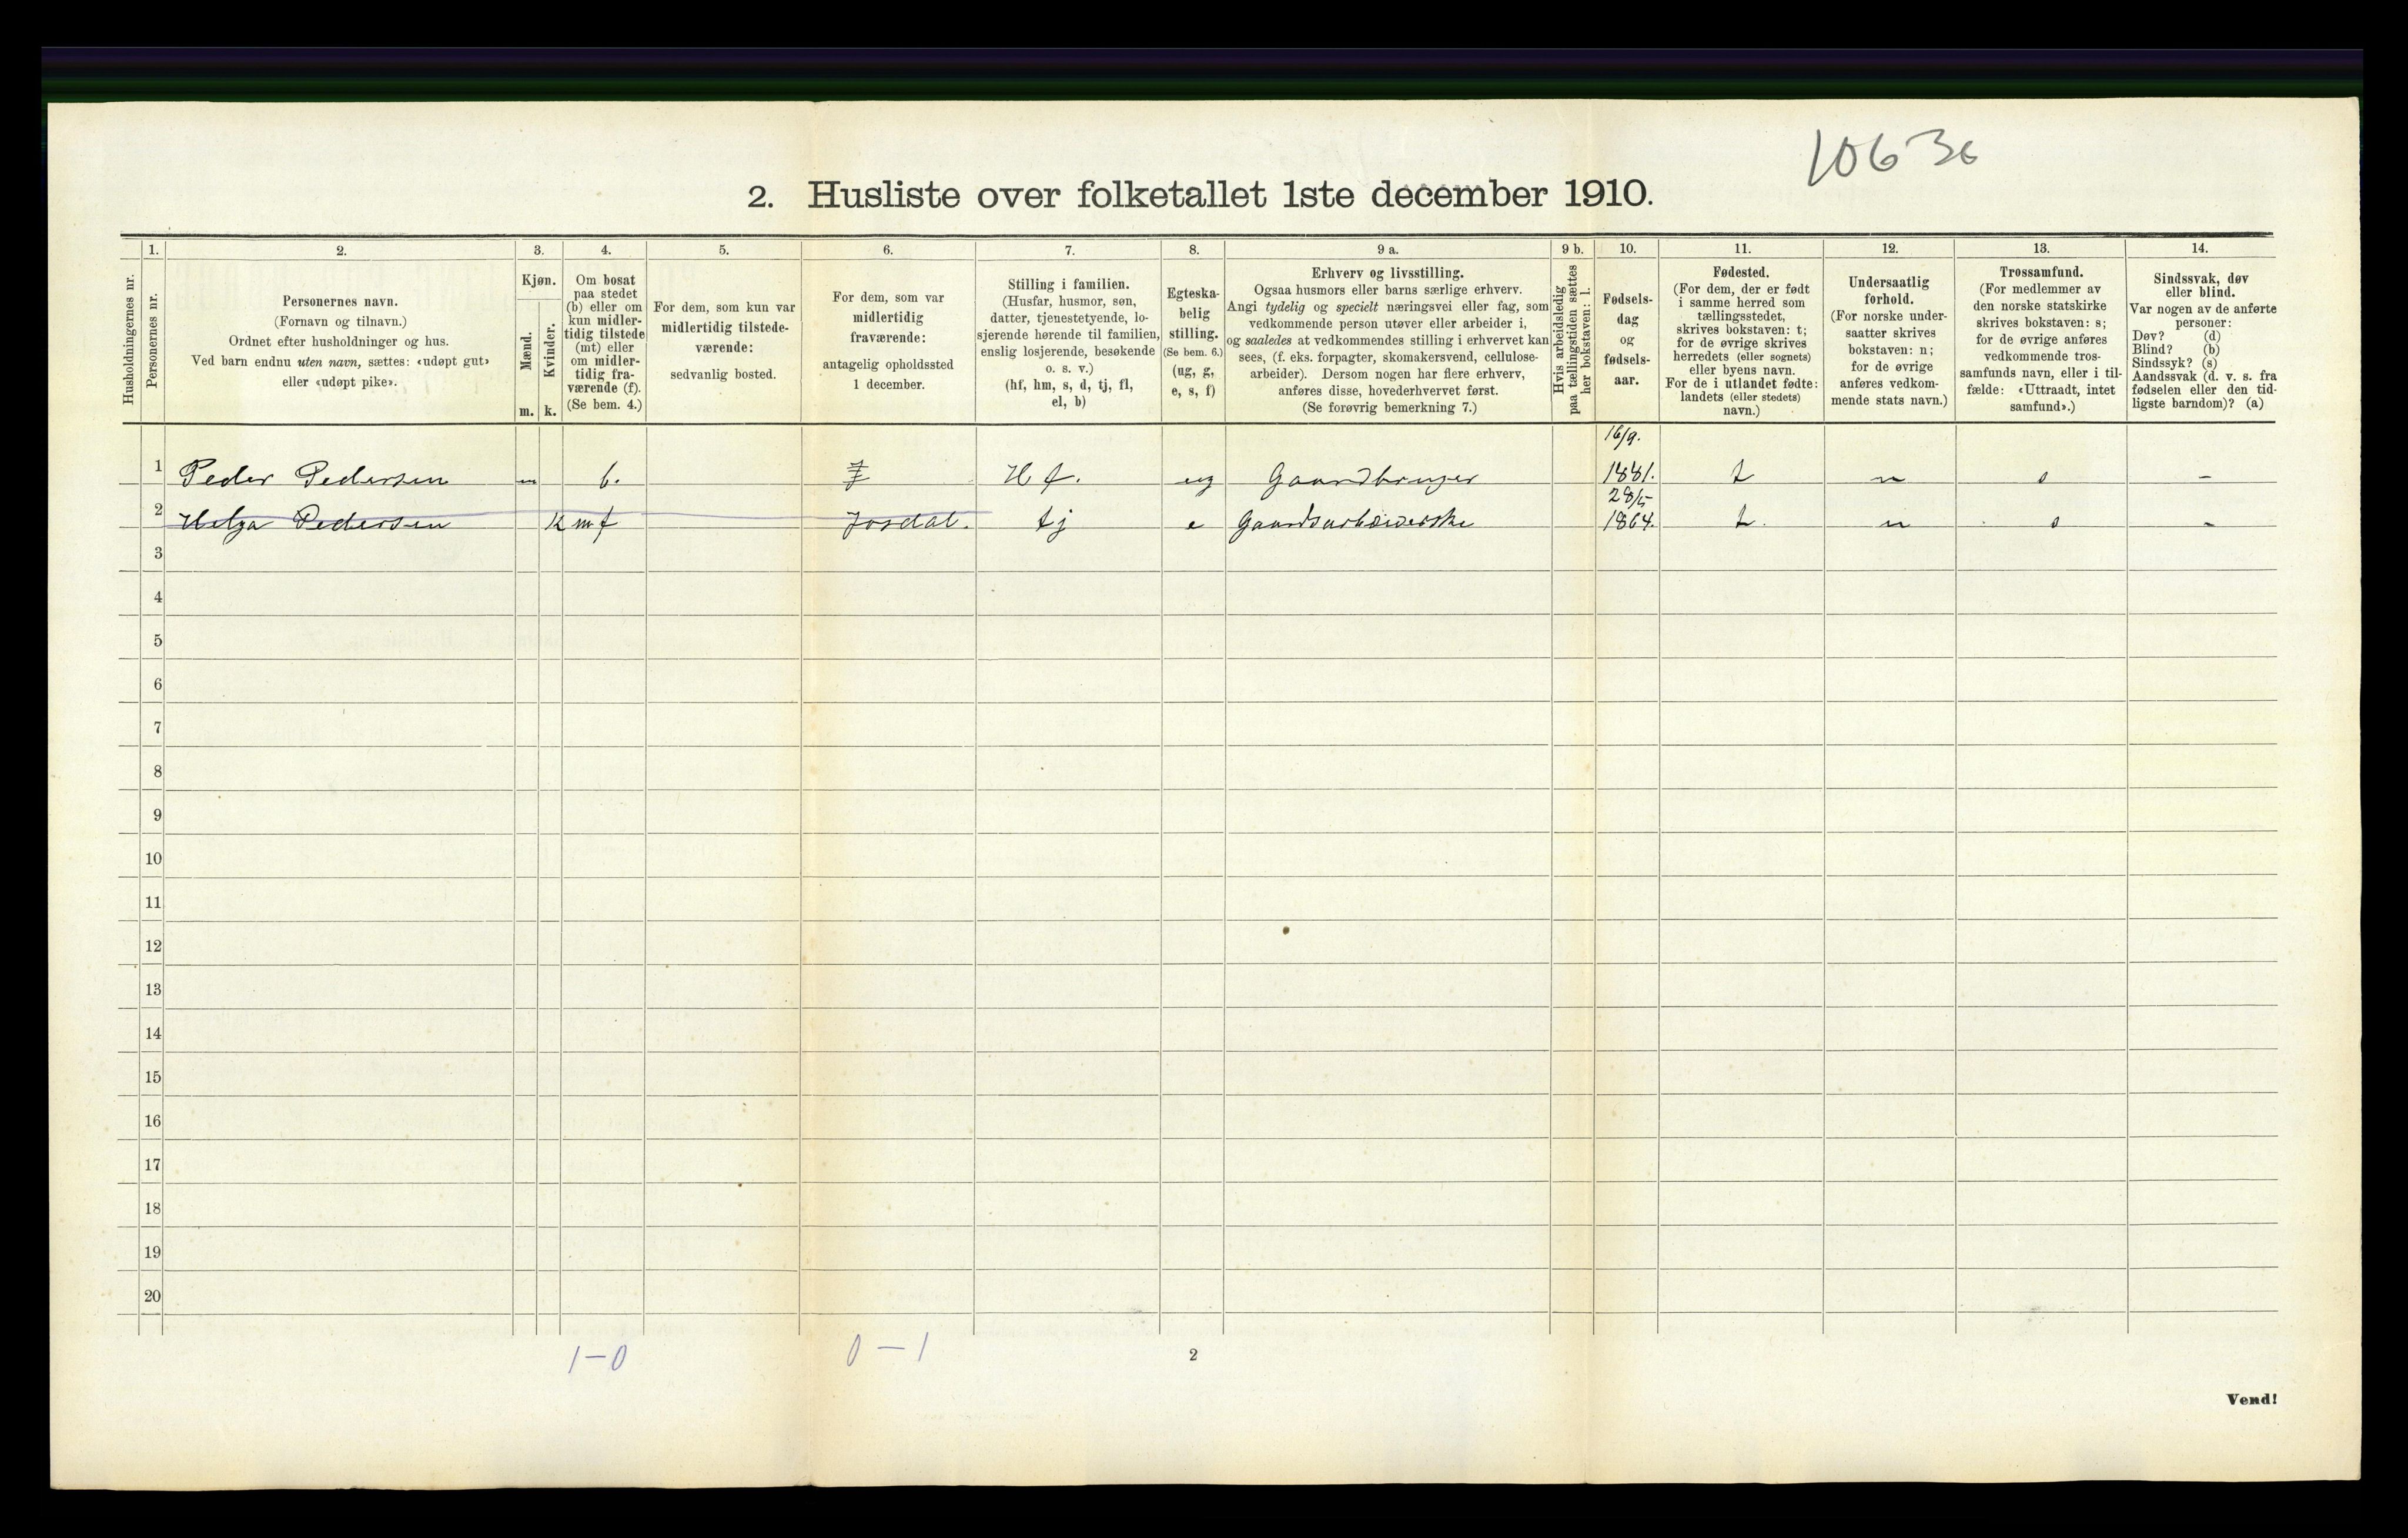 10636
2. Husliste over folketallet 1ste december 1910.
Husholdningernes nr.
1.
Personernes nr.
2.
Personernes navn.
(Fornavn og tilnavn.)
Ordnet efter husholdninger og hus.
Ved barn endnu uten navn, sættes: «udøpt gut»
eller «udøpt pike».
3.
Kjøn.
Mænd.
m.
Kvinder.
k.
4.
Om bosat
paa stedet
(b) eller om
kun midler-
tidig tilstede
(mt) eller
om midler-
tidig fra-
værende (f).
(Se bem. 4.)
5.
For dem, som kun var
midlertidig tilstede-
værende:
sedvanlig bosted.
6.
For dem, som var
midlertidig
fraværende:
antagelig opholdssted
1 december.
7.
Stilling i familien.
(Husfar, husmor, søn,
datter, tjenestetyende, lo-
sjerende hørende til familien,
enslig losjerende, besøkende
o. s. v.)
(hf, hm, s, d, tj, fl,
el, b)
8.
Egteska-
belig
stilling.
(Se bem. 6.)
(ug, g,
e, s, f)
9 a.
Erhverv og livsstilling.
Ogsaa husmors eller barns særlige erhverv.
Angi tydelig og specielt næringsvei eller fag, som
vedkommende person utøver eller arbeider i,
og saaledes at vedkommendes stilling i erhvervet kan
sees, (f. eks. forpagter, skomakersvend, cellulose-
arbeider). Dersom nogen har flere erhverv,
anføres disse, hovederhvervet først.
(Se forøvrig bemerkning 7.)
9 b.
Hvis arbeidsledig
paa tællingstiden sættes
her bokstaven: l.
10.
Fødsels-
dag
og
fødsels-
aar.
11.
Fødested.
(For dem, der er født
i samme herred som
tællingsstedet,
skrives bokstaven: t;
for de øvrige skrives
herredets (eller sognets)
eller byens navn.
For de i utlandet fødte:
landets (eller stedets)
navn.)
12.
Undersaatlig
forhold.
(For norske under-
saatter skrives
bokstaven: n;
for de øvrige
anføres vedkom-
mende stats navn.)
13.
Trossamfund.
(For medlemmer av
den norske statskirke
skrives bokstaven: s;
for de øvrige anføres
vedkommende tros-
samfunds navn, eller i til-
fælde: «Uttraadt, intet
samfund».)
14.
Sindssvak, døv
eller blind.
Var nogen av de anførte
personer:
Døv? (d)
Blind? (b)
Sindssyk? (s)
Aandssvak (d. v. s. fra
fødselen eller den tid-
ligste barndom)? (a)
16/9.
1 Peder Pedersen m b. H f. ug Gaardbruger 1881. t n s -
28/5
2 Helga Pedersen k mf Josdal. tj e Gaardsarbeiderske 1864. t. n s -
3
4
5
6
7
8
9
10
11
12
13
14
15
16
17
18
19
20
1-0
0-1
2
Vend!